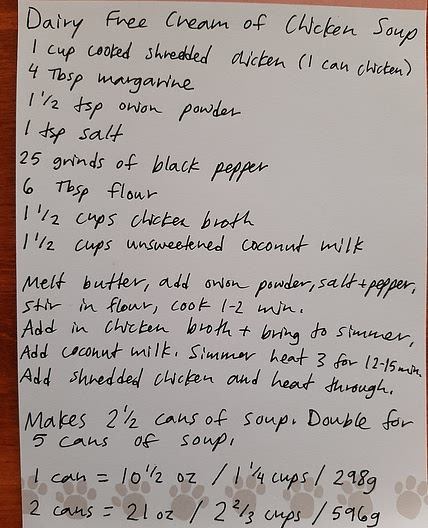 Dairy Free Cream of Chicken Soup
1 cup cooked shredded chicken (1 can chicken)
4 Tbsp margarine
1 1/2 tsp onion powder
1 tsp salt
25 grinds of black pepper
6 Tbsp flour
1 1/2 cups chicken broth
1 1/2 cups unsweetened coconut milk
Melt butter, add onion powder, salt + pepper,
stir in flour, cook 1-2 min.
Add in chicken broth + bring to simmer,
Add coconut milk. Simmer heat 3 for 12-15 min.
Add shredded chicken and heat through.
Makes 2 1/2 cans of soup. Double for
5 cans of soup.
1 can = 10 1/2 oz / 1 1/4 cups / 298g
2 cans = 21 oz / 2 2/3 cups / 596g